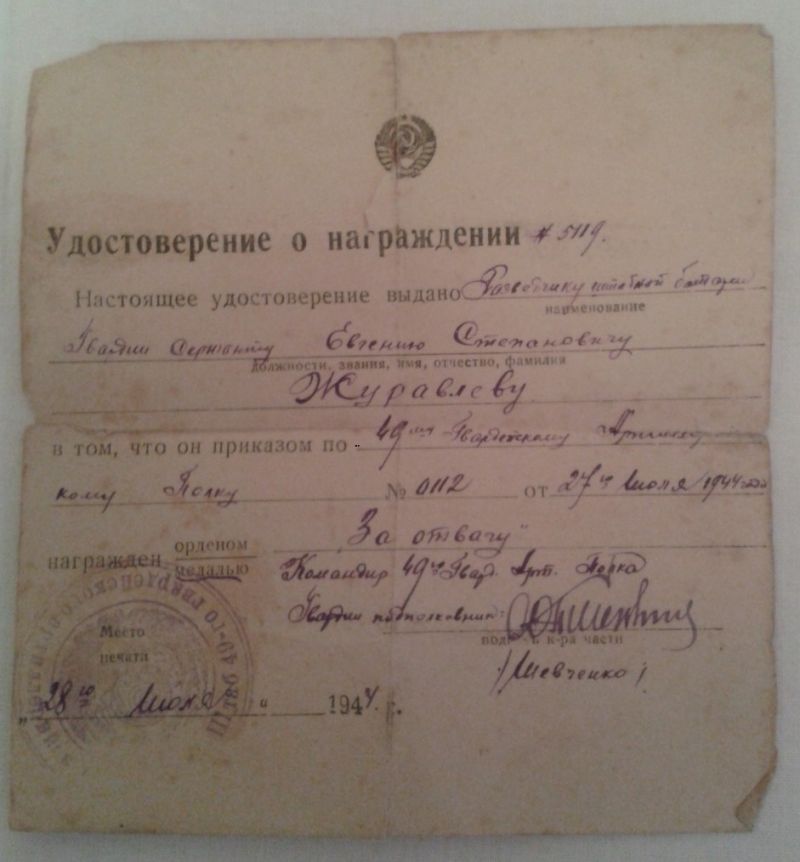 Удостоверение о награждении № 5119.
Настоящее удостоверение выдано Разведчику штабной батареи
наименование
Гвардии Сержанту Евгению Степановичу
должности, звания, имя, отчество, фамилия
Журавлеву
в том, что он приказом по 49му Гвардейскому Артиллерий
кому Полку № 0112 от 27го Июля 1944 года
орденом "За отвагу"
награжден
медалью Командир 49го Гвард. Арт. Полка
Гвардии подполковник:
подпись к-ра части
/Шевченко/
Место
печати
„28го Июля" 1944 г.
49-го гвардейского
Штаб